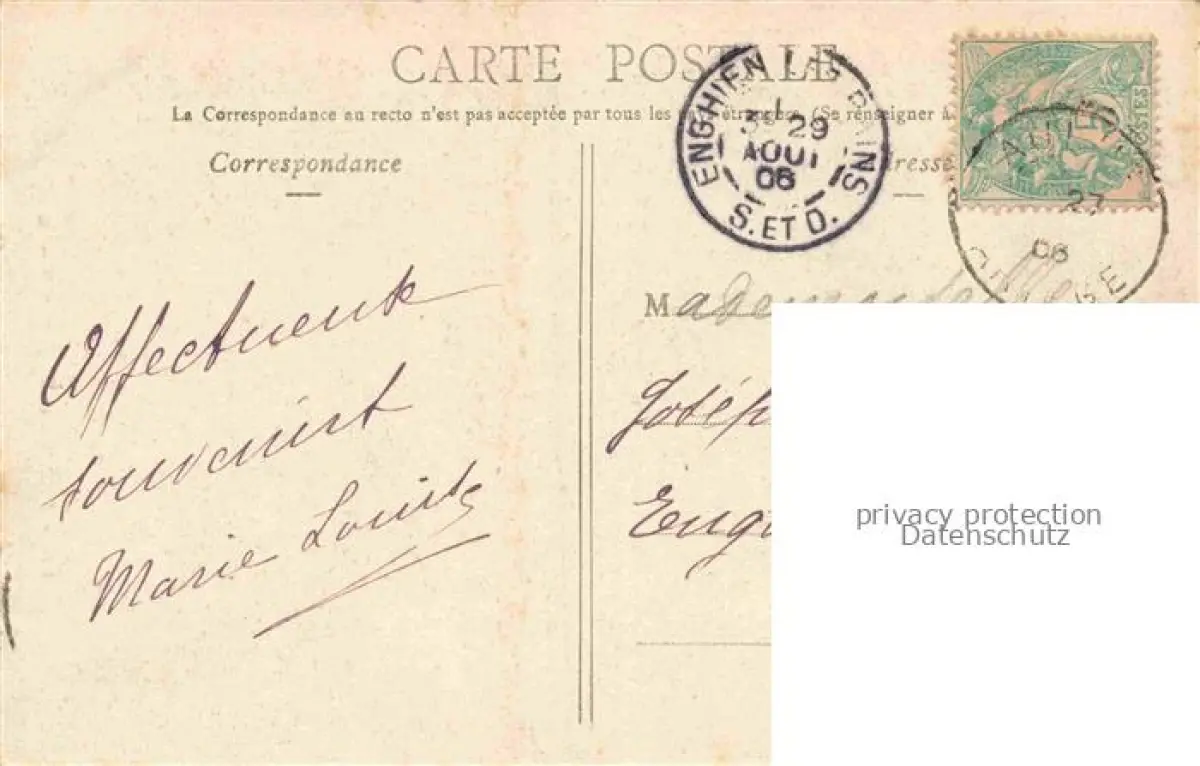 CARTE POSTALE
La Correspondance au recto n'est pas acceptée par tous les pays étrangers (Se renseigner à
Correspondance
ENGHIEN LES BAINS
3 29
AOUT
06
S. ET D.
POSTES
27
06
Mademoiselle
Affectueux
souvenirs
Marie Louise
privacy protection
Datenschutz